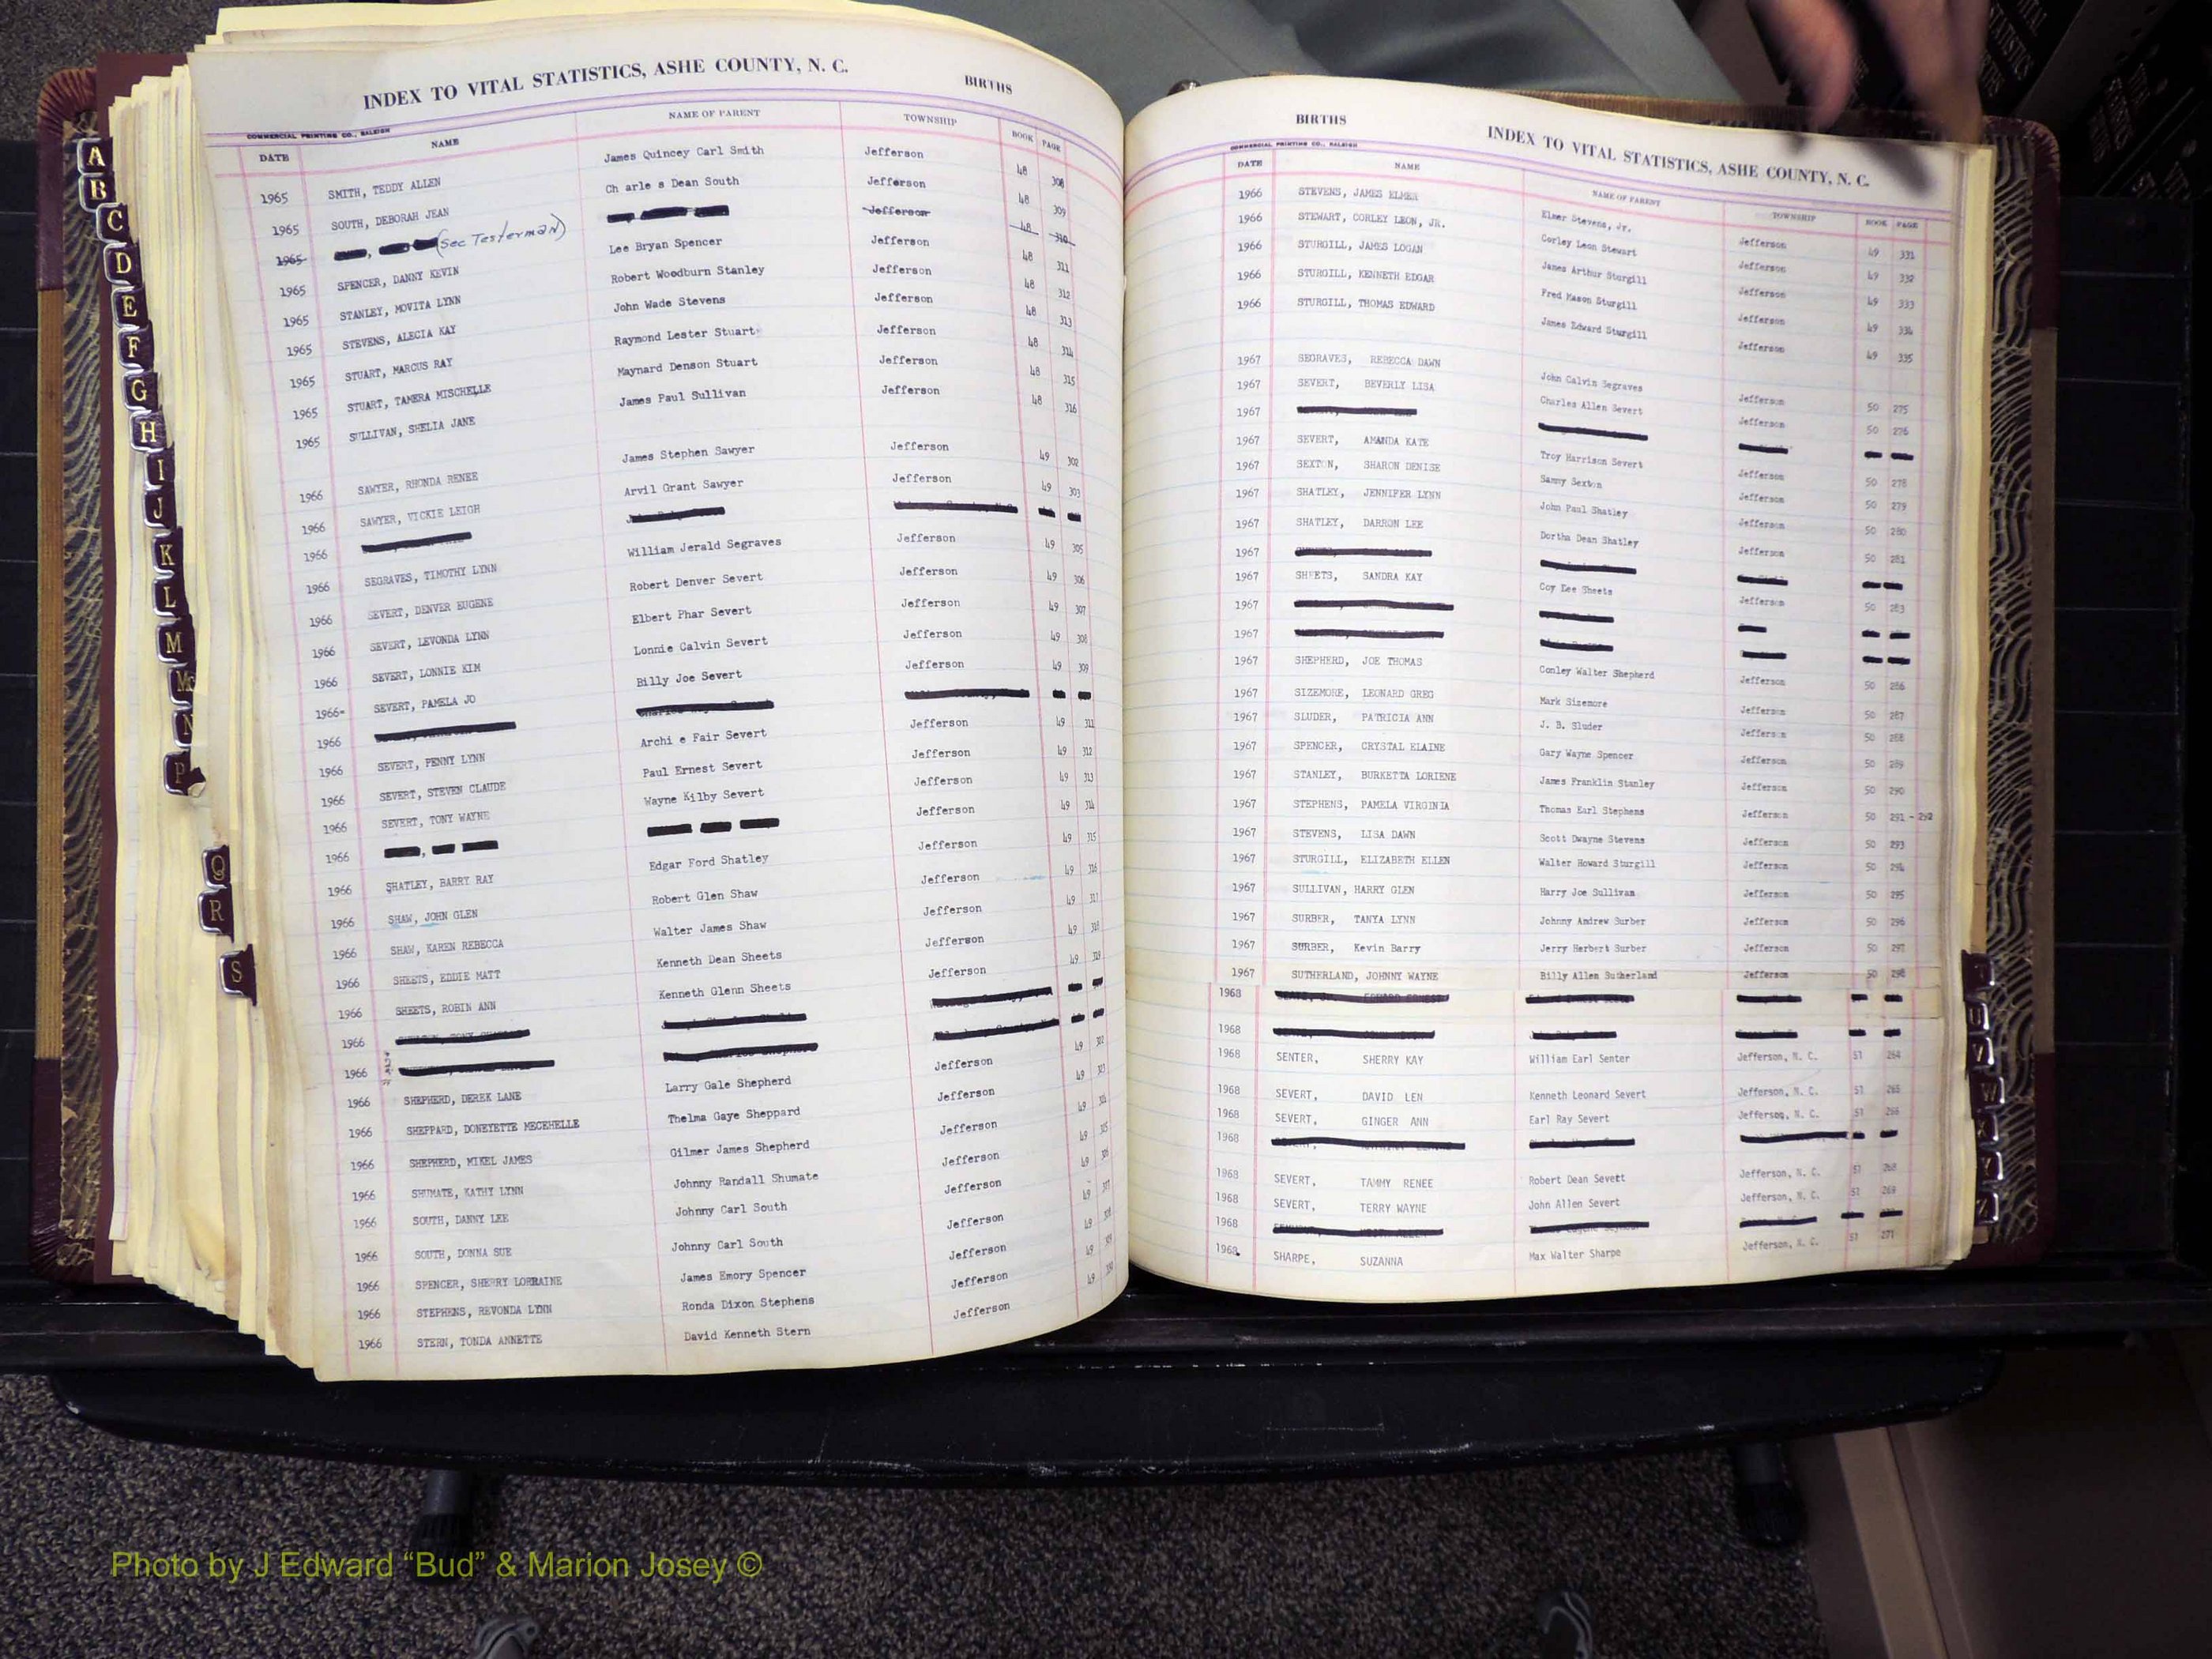 INDEX TO VITAL STATISTICS, ASHE COUNTY, N. C. BIRTHS
COMMERCIAL PRINTING CO., RALEIGH
DATE NAME NAME OF PARENT TOWNSHIP BOOK PAGE
1965 SMITH, TEDDY ALLEN James Quincey Carl Smith Jefferson 48 308
1965 SOUTH, DEBORAH JEAN Ch arle s Dean South Jefferson 48 309
1965 (See Testerman) Jefferson 48 310
1965 SPENCER, DANNY KEVIN Lee Bryan Spencer Jefferson 48 311
1965 STANLEY, MOVITA LYNN Robert Woodburn Stanley Jefferson 48 312
1965 STEVENS, ALECIA KAY John Wade Stevens Jefferson 48 313
1965 STUART, MARCUS RAY Raymond Lester Stuart Jefferson 48 314
1965 STUART, TAMERA MISCHELLE Maynard Denson Stuart Jefferson 48 315
1965 SULLIVAN, SHELIA JANE James Paul Sullivan Jefferson 48 316
1966 SAWYER, RHONDA RENEE James Stephen Sawyer Jefferson 49 302
1966 SAWYER, VICKIE LEIGH Arvil Grant Sawyer Jefferson 49 303
1966
1966 SEGRAVES, TIMOTHY LYNN William Jerald Segraves Jefferson 49 305
1966 SEVERT, DENVER EUGENE Robert Denver Severt Jefferson 49 306
1966 SEVERT, LEVONDA LYNN Elbert Phar Severt Jefferson 49 307
1966 SEVERT, LONNIE KIM Lonnie Calvin Severt Jefferson 49 308
1966- SEVERT, PAMELA JO Billy Joe Severt Jefferson 49 309
1966
1966 SEVERT, PENNY LYNN Archi e Fair Severt Jefferson 49 311
1966 SEVERT, STEVEN CLAUDE Paul Ernest Severt Jefferson 49 312
1966 SEVERT, TONY WAYNE Wayne Kilby Severt Jefferson 49 313
1966 Jefferson 49 314
1966 SHATLEY, BARRY RAY Edgar Ford Shatley Jefferson 49 315
1966 SHAW, JOHN GLEN Robert Glen Shaw Jefferson 49 316
1966 SHAW, KAREN REBECCA Walter James Shaw Jefferson 49 317
1966 SHEETS, EDDIE MATT Kenneth Dean Sheets Jefferson 49 318
1966 SHEETS, ROBIN ANN Kenneth Glenn Sheets Jefferson 49 319
1966
1966
1966 SHEPHERD, DEREK LANE Larry Gale Shepherd Jefferson 49 322
1966 SHEPPARD, DONEYETTE MECEHELLE Thelma Gaye Sheppard Jefferson 49 323
1966 SHEPHERD, MIKEL JAMES Gilmer James Shepherd Jefferson 49 324
1966 SHUMATE, KATHY LYNN Johnny Randall Shumate Jefferson 49 325
1966 SOUTH, DANNY LEE Johnny Carl South Jefferson 49 326
1966 SOUTH, DONNA SUE Johnny Carl South Jefferson 49 327
1966 SPENCER, SHERRY LORRAINE James Emory Spencer Jefferson 49 328
1966 STEPHENS, REVONDA LYNN Ronda Dixon Stephens Jefferson 49 329
1966 STERN, TONDA ANNETTE David Kenneth Stern Jefferson 49 330
BIRTHS INDEX TO VITAL STATISTICS, ASHE COUNTY, N. C.
COMMERCIAL PRINTING CO., RALEIGH
DATE NAME NAME OF PARENT TOWNSHIP BOOK PAGE
1966 STEVENS, JAMES ELMER Elmer Stevens, Jr. Jefferson 49 331
1966 STEWART, CORLEY LEON, JR. Corley Leon Stewart Jefferson 49 332
1966 STURGILL, JAMES LOGAN James Arthur Sturgill Jefferson 49 333
1966 STURGILL, KENNETH EDGAR Fred Mason Sturgill Jefferson 49 334
1966 STURGILL, THOMAS EDWARD James Edward Sturgill Jefferson 49 335
1967 SEGRAVES, REBECCA DAWN John Calvin Segraves Jefferson 50 275
1967 SEVERT, BEVERLY LISA Charles Allen Severt Jefferson 50 276
1967
1967 SEVERT, AMANDA KATE Troy Harrison Severt Jefferson 50 278
1967 SEXTON, SHARON DENISE Sammy Sexton Jefferson 50 279
1967 SHATLEY, JENNIFER LYNN John Paul Shatley Jefferson 50 280
1967 SHATLEY, DARRON LEE Dortha Dean Shatley Jefferson 50 281
1967
1967 SHEETS, SANDRA KAY Coy Lee Sheets Jefferson 50 283
1967
1967
1967 SHEPHERD, JOE THOMAS Conley Walter Shepherd Jefferson 50 286
1967 SIZEMORE, LEONARD GREG Mark Sizemore Jefferson 50 287
1967 SLUDER, PATRICIA ANN J. B. Sluder Jefferson 50 288
1967 SPENCER, CRYSTAL ELAINE Gary Wayne Spencer Jefferson 50 289
1967 STANLEY, BURKETTA LORIENE James Franklin Stanley Jefferson 50 290
1967 STEPHENS, PAMELA VIRGINIA Thomas Earl Stephens Jefferson 50 291 - 292
1967 STEVENS, LISA DAWN Scott Dwayne Stevens Jefferson 50 293
1967 STURGILL, ELIZABETH ELLEN Walter Howard Sturgill Jefferson 50 294
1967 SULLIVAN, HARRY GLEN Harry Joe Sullivan Jefferson 50 295
1967 SURBER, TANYA LYNN Johnny Andrew Surber Jefferson 50 296
1967 SURBER, Kevin Barry Jerry Herbert Surber Jefferson 50 297
1967 SUTHERLAND, JOHNNY WAYNE Billy Allen Sutherland Jefferson 50 298
1968
1968
1968 SENTER, SHERRY KAY William Earl Senter Jefferson, N. C. 51 264
1968 SEVERT, DAVID LEN Kenneth Leonard Severt Jefferson, N. C. 51 265
1968 SEVERT, GINGER ANN Earl Ray Severt Jefferson, N. C. 51 266
1968
1968 SEVERT, TAMMY RENEE Robert Dean Severt Jefferson, N. C. 51 268
1968 SEVERT, TERRY WAYNE John Allen Severt Jefferson, N. C. 51 269
1968
1968 SHARPE, SUZANNA Max Walter Sharpe Jefferson, N. C. 51 271
A
B
C
D
E
F
G
H
I
J
K
L
M
Mc
N
P
Q
R
S
V
W
Y
Z
Photo by J Edward “Bud” & Marion Josey ©